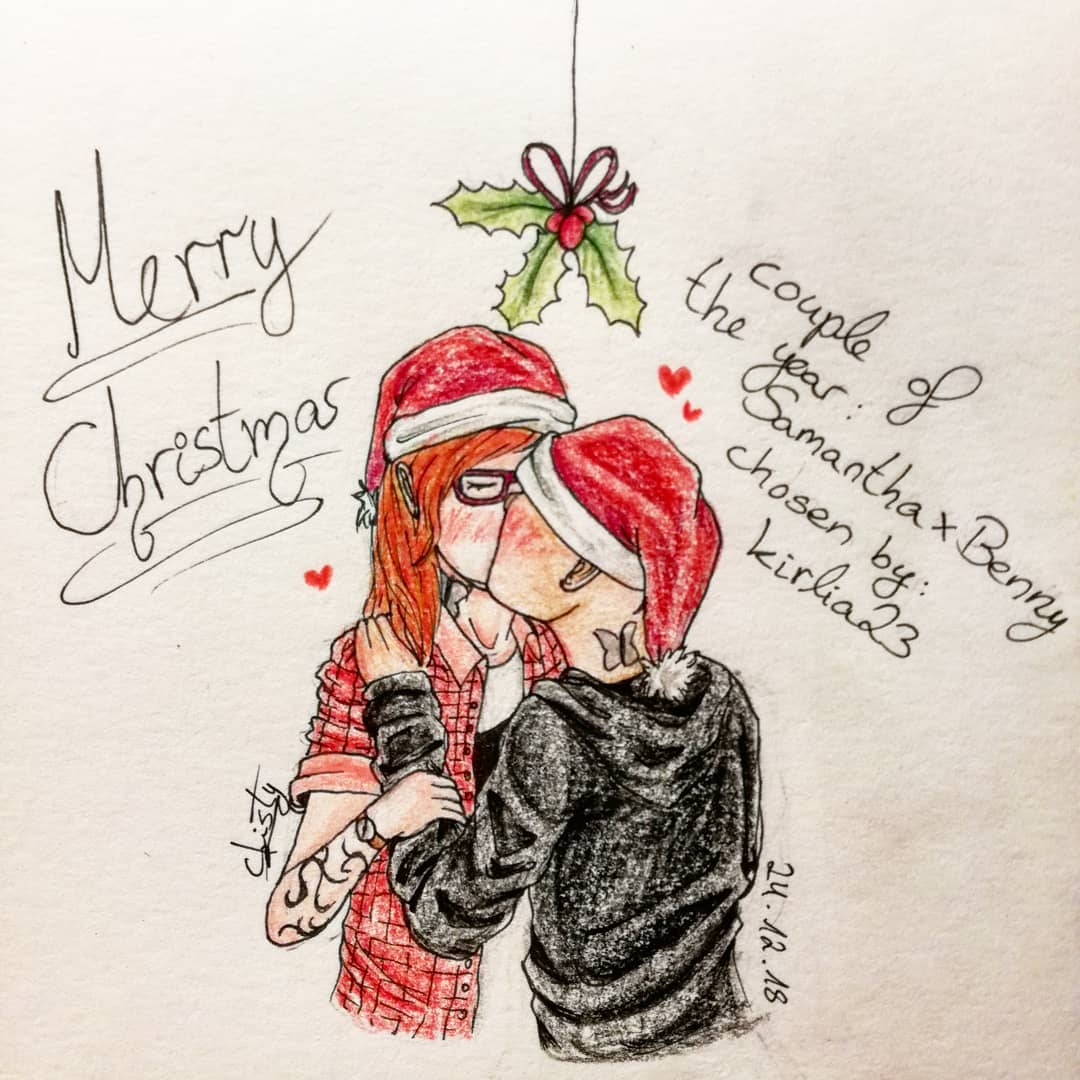 Merry
Christmas
couple of
the year:
Samantha x Benny
chosen by:
kirlia23
Christy
24.12.18